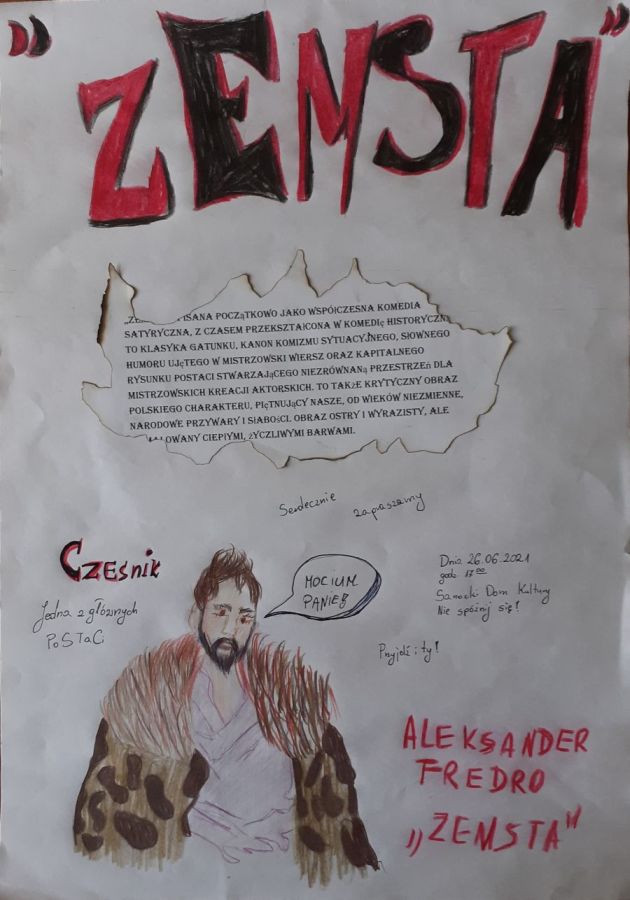 "ZEMSTA"
POCZĄTKOWO JAKO WSPÓłCZESNA KOMEDIA
SATYRYCZNA, Z CZASEM PRZEKSZTAłCONA W KOMEDIę
TO KLASYKA GATUNKU, KANON KOMIZMU SYTUACYJNEGO, SłOWNEGO
HUMORU UJęTEGO W MISTRZOWSKI WIERSZ ORAZ KAPITALNEGO
RYSUNKU POSTACI STWARZAJĄCEGO NIEZRÓWNANĄ PRZESTRZEń DLA
MISTRZOWSKICH KREACJI AKTORSKICH. TO TAKżE KRYTYCZNY OBRAZ
POLSKIEGO CHARAKTERU, PIęTNUJĄCY NASZE, OD WIEKÓW NIEZMIENNE,
NARODOWE PRZYWARY I SłABOśCI. OBRAZ OSTRY I WYRAZISTY, ALE
CIEPłYMI, żYCZLIWYMI BARWAMI.
Serdecznie zapraszamy
Cześnik
Jedna z głównych
PoSTaCi
MOCIUM
PANIE
Dnia 26.06.2021
godz. 17⁰⁰
Sanocki Dom Kultury
Nie spóźnij się!
Przyjdź i ty!
ALEKSANDER
FREDRO
„ZEMSTA"